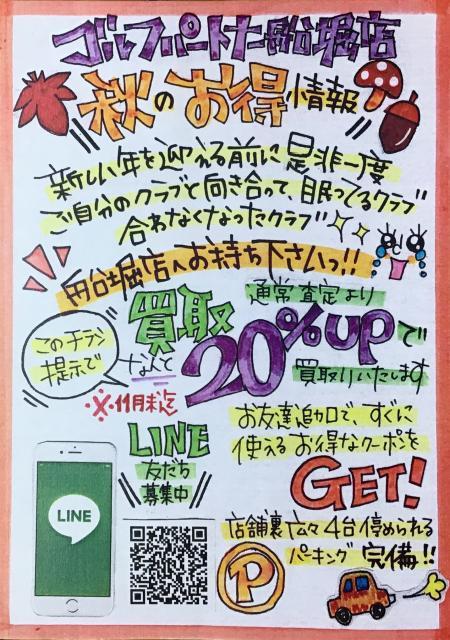 ゴルフパートナー船堀店
秋のお得情報
新しい年を迎える前に是非一度
ご自分のクラブと向き合って、眠ってるクラブ
合わなくなったクラブ
船堀店へお持ち下さいっ!!
このチラシ
提示で
買取
なんと
通常査定より
20%UPで
買取りいたします
※11月末迄
LINE
友だち
募集中
お友達追加で、すぐに
使えるお得なクーポンを
GET!
LINE
店舗裏広々4台停められる
パーキング完備!!
P